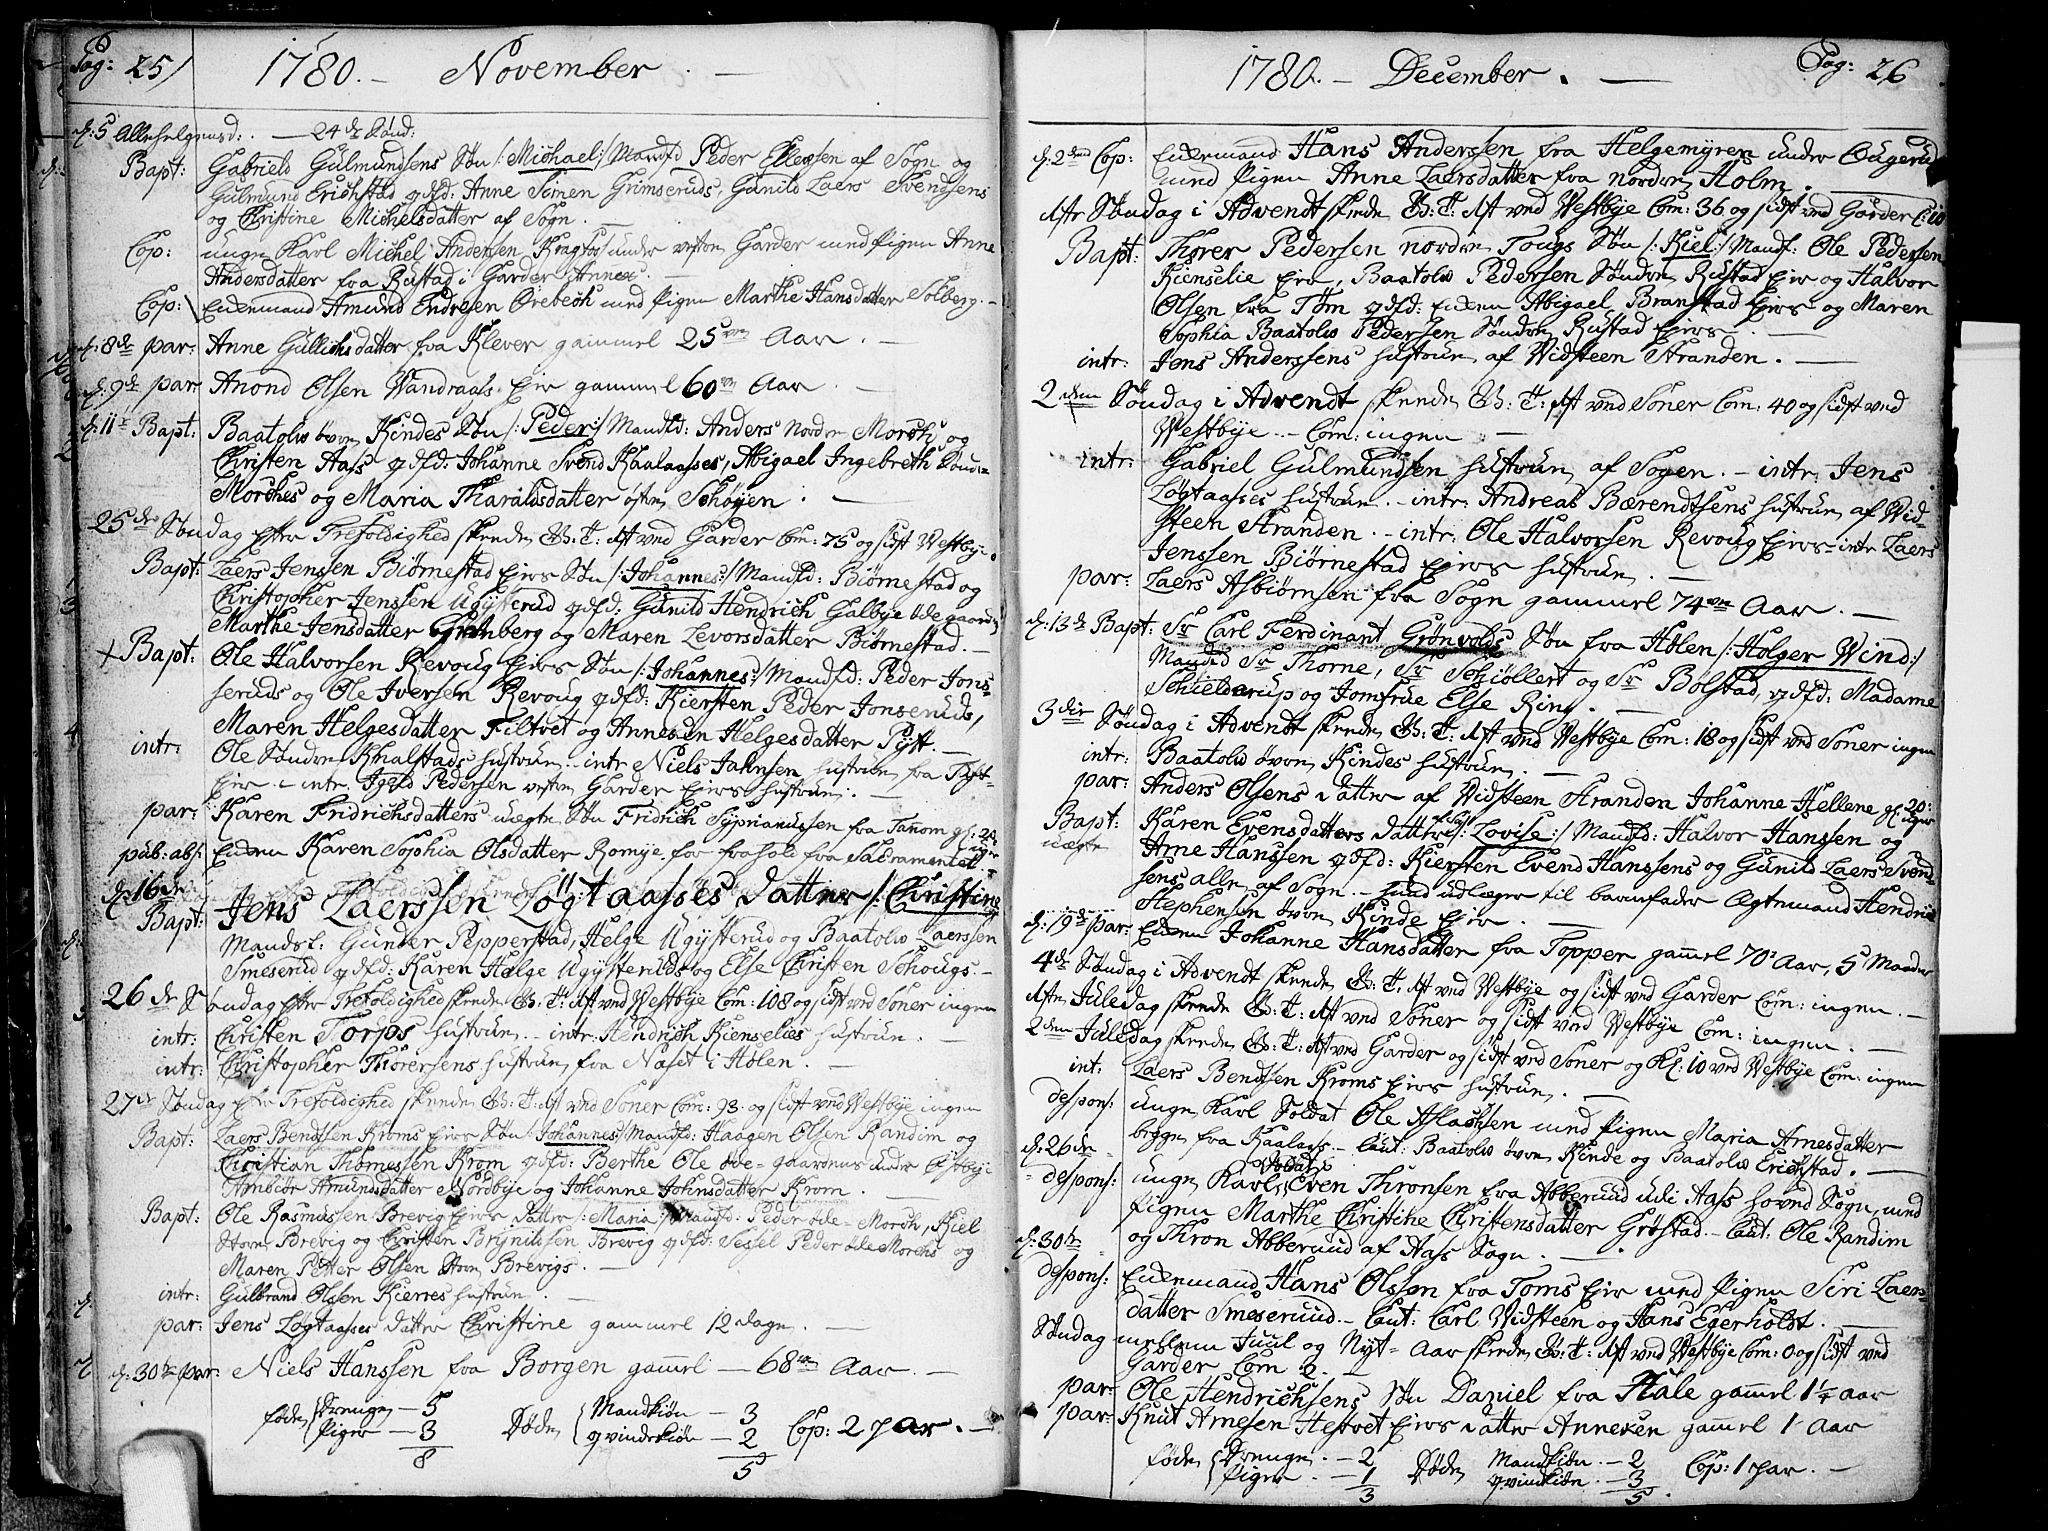 Pag: 25/ 1780. — November. —
d: 5 Allehelgensd: — 24de Sønd:
Bapt: Gabriels Gulmundsens Søn /: Michael :/ Mandfd Peder Ellevsen af Sogn og
Gulmund Erichstad qdfd: Anne Simen Grimseruds, Gunild Laers Svendsens
og Christine Michelsdatter af Sogn. —
Cop: unge Karl Michel Andersen Kragfos under vestre Garder med Pigen Anne
Andersdatter fra Rustad i Garder Annex. —
Cop: Enkemand Amund Endresen Ørebech med Pigen Marthe Hansdatter Solberg. —
d: 8de par: Anne Gullichsdatter fra Klever gammel 25 Aar. —
d: 9de par: Anond Olsen Vandraals Eie gammel 60 Aar —
d: 11te Bapt: Baatolv øvre Kindes Søn /: Peder :/ Mandfd: Anders nordre Morch, og
Christen Aass qdfd: Johanne Svend Kaalaasses, Abigael Ingebreth Sønd=
Morches og Maria Tharaldsdatter østre Schøyen. —
25de Søndag efter Trefoldighed skeede G: T: 1st ved Garder Com: 75 og sidst Vestbye.
Bapt: Laers Jenssen Biørnestad Eies Søn /: Johannes :/ Mandfd: Biørnestad og
Christopher Jenssen Ugysterud qdfd: Gunild Hendrich Galbye ødegaarden
Marthe Jensdatter Grimberg og Maren Levorsdatter Biørnestad. —
Bapt: Ole Halvorsen Revoug Eies Søn /: Johannes :/ Mandfd: Peder Jons=
seruds og Ole Iversen Revoug qdfd: Kiersten Peder Jonseruds,
Maren Helgesdatter Filtvet og Anneken Helgesdatter Pyst. —
intr: Ole Søndre Knalstads hustrue. — intr Niels Jahnsen hustrue fra Tyst=
Eie — intr. Iged Pedersen vestre Garder Eies hustrue. —
par: Karen Fridrichsdatters uægte Søn Fridrich Syprianussen fra Tanom gl: 20 Uger
pub: abs: Enken Karen Sophia Olsdatter Romye for forhold fra Sakramentet
d: 16de
Bapt: Jens Laerssen Løgtaasses datter /: Christine
Mandsf: Gunder Pepperstad, Helge Ugysterud og Baatolv Laerssen
Smeserud qdfd: Karen Helge Ugysteruds og Else Christen Schougs. —
26de Søndag efter Trefoldighed skeede G: T: 1st ved Vestbye Com: 108 og sidst ved Soner ingen
intr: Christen Torps hustrue. — intr: Hendrich Kienselies hustrue. —
intr: Christopher Thorersens hustrue fra Næset i Hølen. —
27de Søndag efter Trefoldighed skeede G: T: 1st ved Soner Com: 93. og sidst ved Vestbye ingen
Bapt: Laers Bendtsen Kroms Eies Søn /: Johannes :/ Mandfd: Haagen Olsen Randim og
Christian Thomessen Krom qdfd: Berthe Ole øde=gaardens under Østbye
Anbiør Amundsdatter Nordbye og Johanne Johnsdatter Krom. —
Bapt: Ole Rasmussen Brevig Eies datter /: Maria :/ Mandfd: Peder øde= Morch, Kiel
Store Brevig og Christen Brynildsen Brevig qdfd: Sessel Peder øde Morchs og
Maren Petter Olsen Store Brevigs. —
intr: Gulbrand Olsen Kierres hustrue. —
par: Jens Løgtaasses datter Christine gammel 12 dage. —
d: 30te par: Niels Hanssen fra Borgen gaml — 68 Aar. —
føde { Drenge — 5 Døde { Mandkiøn — 3 Cop: 2 par. —
Piger — 3 qvindekiøn — 2
8 5
1780. — December. — Pag: 26
d: 2den Cop: Enkemand Hans Andersen fra Helgemyren under Ougerud
med Pigen Anne Laersdatter fra nordre Holm. —
1ste Søndag i Advendt skeede G: T: 1st ved Vestbye Com: 36 og sidst ved Garder C: 10
Bapt: Thorer Pedersen nordre Tougs Søn /: Kiel :/ Mandf: Ole Pedersen
Kienselie Eie, Baatolv Pedersen Søndre Rustad Eie og Halvor
Olsen fra Tøm qdfd: Enken Abigael Branstad Eies og Maren
Sophia Baatolv Pedersen Søndre Rustad Eies. —
intr: Jens Anderssens hustrue af Vidsteen Stranden. —
2den Søndag i Advendt skeede G: T: 1st ved Soner Com: 40 og sidst ved
Vestbye. — Com: ingen —
intr: Gabriel Gulmundsen hustrue af Sogen. — intr: Jens
Løgtaasses hustrue. — intr: Andreas Bærendtsens hustrue af Vid=
steen Stranden. — intr: Ole Halvorsen Revoug Eies — intr Laers
Jenssen Biørnestad Eies hustrue. —
par: Laers Asbiørnsen fra Sogn gammel 74 Aar. —
d: 13de Bapt: Sr Carl Ferdinant Grønvolds Søn fra Hølen /: Holger Wind :/
Mandfd Sr Thorne, Sr Schiøllert og Sr Bolstad, qdfd: Madame
Schielderup og Jomfrue Else Ring. —
3die Søndag i Advendt skeede G: T: 1st ved Vestbye Com: 18 og sidst ved Soner ingen
intr: Baatolv øvre Kindes hustrue. —
par: Anders Olsens datter af Vidsteen Stranden Johanne Hellene gl: 20: uger
Bapt: Karen Evensdatters datter /: Lovise :/ Mandfd: Halvor Hanssen og
uægte Arne Hanssen qdfd: Kiersten Evend Hanssens og Gunild Laers Svend=
sens alle af Sogn. — hun udlægger til barnefader Agtemand Hendric
Stephensen øvre Kinde Eie. —
d: 19de par: Enken Johanne Hansdatter fra Topper gaml 70 Aar, 5 Maander
4de Søndag i Advendt skeede G: T: 1st ved Vestbye og sidst ved Garder Com: ingen. —
1ste Juledag skeede G: T: 1st ved Soner og sidst ved Vestbye Com: ingen. —
2den Juledag skeede G: T: 1st ved Garder og sidst ved Soner og Kl: 10 ved Vestbye Com: ingen
int: Laers Bendtsen Kroms Eies hustrue. —
despons: unge Karl Soldat Ole Aslachsen med Pigen Maria Arnesdatter
begge fra Kaalaas — Caut: Baatolv øvre Kinde og Baatolv Erichstad. —
d: 26de
despons: unge Karl Soldat Even Thronsen fra Abberuud udi Aass hoved Sogn, med
Pigen Marthe Christine Christensdatter Grøstad. — Caut: Ole Randim
og Thron Abberuud af Aass Sogn. —
d: 30te
despons: Enkemand Hans Olsson fra Toms Eie med Pigen Siri Laers=
datter Smeserund. — Caut: Carl Vidsteen og Hans Egerholdt. —
Søndag mellem Juul og Nyt=Aar skeede G: T: 1st ved Vestbye Com: 0 og sidst ved
Garder Com 2. —
par: Ole Hendrichsens Søn Daniel fra Hale gaml 1¼ aar
par: Knut Arnesen Hestvet Eies datter Anneken gaml 1 Aar
føde { Drenge. — 2 Døde Mandkiøn. — 2 Cop: 1 par. —
Piger — 1 qvindkiøn. — 3
3 5.